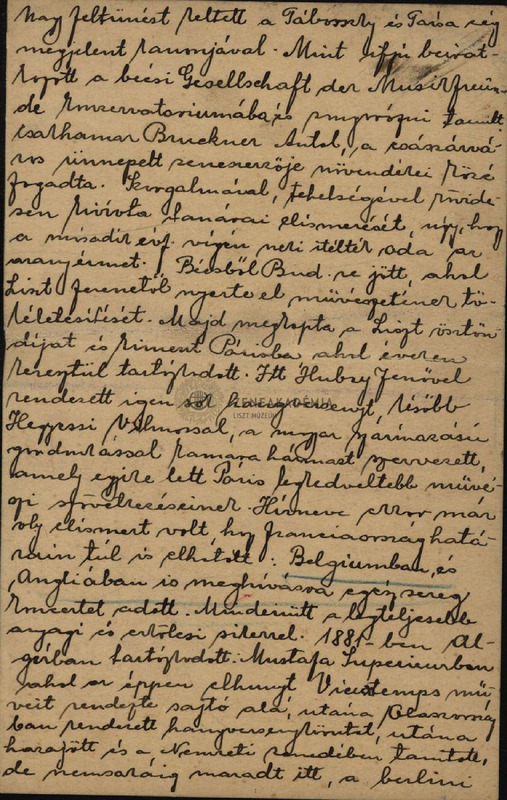 nagy feltünést keltett a Táborszky és Parsa cég
megjelent kanonjával. Mint ifjú beirat-
kozott a bécsi Gesellschaft der Musikfreun-
de konzervatoriumába, és
csakhamar Bruckner Antal, a császárvá-
ros ünnepelt zeneszerzője növendékei közé
fogadta. Szorgalmával, tehetségével rövide-
sen kivívta tanárai elismerését, úgy, hogy
a második évf. végén neki itélték oda az
aranyérmet. Bécsből Bud.-re jött, ahol
Liszt Ferenctől nyerte el művészetének tö-
kéletesítését. Majd megkapta a Liszt ösztön-
díjat és kiment Párisba ahol éveken
keresztül tartózkodott. Itt Hubay Jenővel
rendezett igen sok hangversenyt, később
Hegyessi Vilmossal, a magyar származású
gordonkással kamara hármast szervezett,
amely egyike lett Páris legkedveltebb művé-
szi szövetkezéseinek. Hírneve ekkor már
oly elismert volt, hogy franciaország hatá-
rain túl is elhatott: Belgiumban, és
Angliában is meghívásra egész sereg
koncertet adott. Mindenütt a legteljesebb
anyagi és erkölcsi sikerrel. 1881-ben Al-
girban tartózkodott. Mustafa Superieurben
ahol az éppen elhunyt Vieuxtemps mű-
veit rendezte sajtó alá, utána Olaszország-
ban rendezett hangversenykörutat, utána
hazajött és a Nemzeti zenedében tanított,
de nemsokáig maradt itt, a berlini
ZENEAKADÉMIA
LISZT MÚZEUM